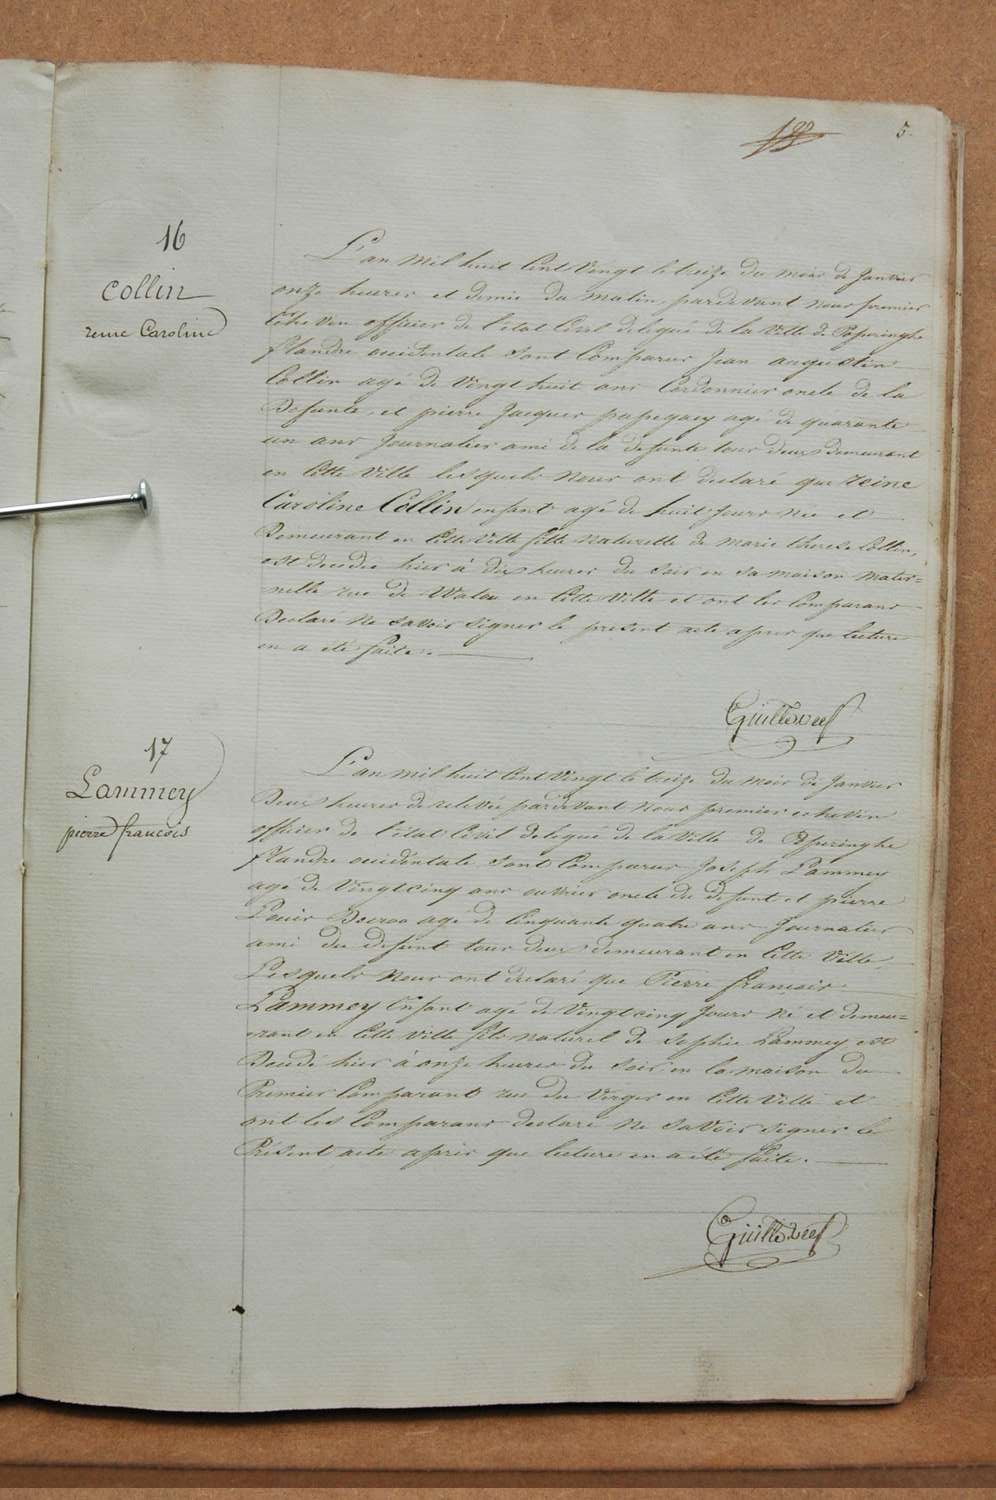 5.
16
Collin
reine Caroline
L'an mil huit cent vingt le treize du mois de Janvier
onze heures et demie du matin, pardevant nous premier
Echevin officier de l'état Civil delegué de la Ville de Poperinghe
flandre occidentale sont Comparus Jean augustin
Collin agé de Vingt huit ans Cordonnier oncle de la
Defunte, et pierre Jacques papegaey agé de quarante
un ans Journalier ami de la defunte tous deux Demeurant
en Cette Ville lesquels Nous ont declaré que reine
Caroline Collin enfant agé de huit Jours née et
Demeurant en Cette Ville fille naturelle de marie therese Collin,
est decedée hier à dix heures du soir en sa maison mater=
nelle rue de en Cette Ville et ont les Comparans
Declaré Ne savoir signer le present acte apres que lecture
en a été faite.
Guilleweef
17
Lammey
pierre francois
L'an mil huit Cent Vingt le treize du mois de Janvier
Deux heures de relevée pardevant Nous premier echevin
officier de l'état Civil delegué de la Ville de Poperinghe
flandre occidentale sont Comparus Joseph Lammey
agé de Vingtcinq ans ouvrier oncle du defunt et pierre
Louis agé de Cinquante quatre ans Journalier
ami du defunt tous deux demeurant en Cette Ville,
Lesquels Nous ont declaré que Pierre françois
Lammey Enfant agé de Vingtcinq Jours Né et demeu=
rant en Cette Ville fils naturel de Sophie Lammey est
Decedé hier à onze heures du Soir, en la maison du
Premier Comparant rue du Verger en Cette Ville et
ont les Comparans declaré Ne savoir signer le
Présent acte apris que lecture en a été faite.
Guilleweef